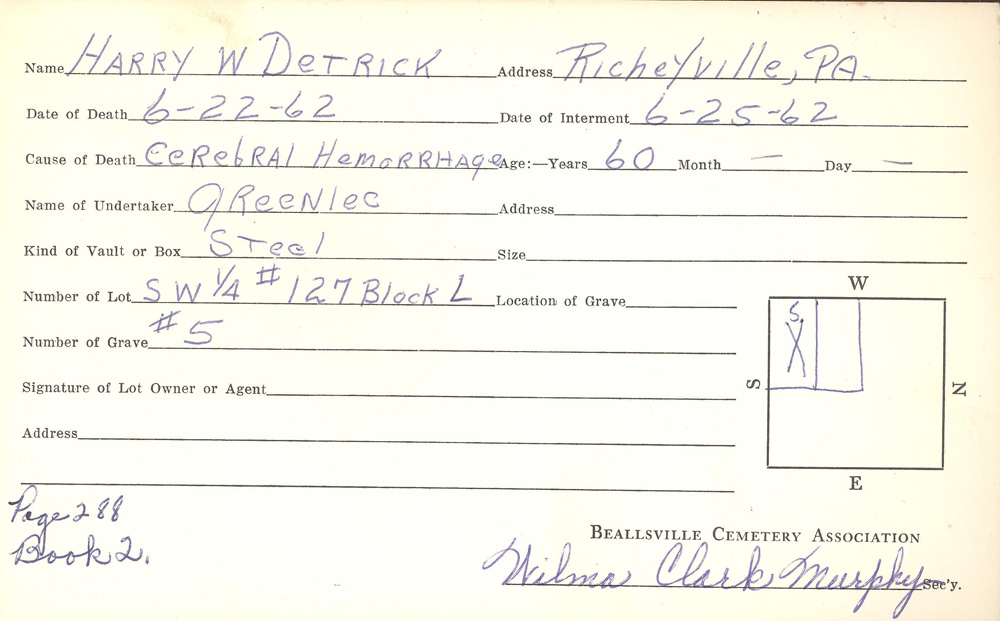 Name HARRY W DETRICK Address Richeyville, PA.
Date of Death 6-22-62 Date of Interment 6-25-62
Cause of Death Cerebral HemoRRHAge Age:—Years 60 Month — Day —
Name of Undertaker GReeNlee Address
Kind of Vault or Box Steel Size
Number of Lot SW 1/4 # 127 Block L Location of Grave
Number of Grave # 5
Signature of Lot Owner or Agent
Address
W
5
X
S
N
E
Page 288
Book 2.
BEALLSVILLE CEMETERY ASSOCIATION
Wilma Clark Murphy Sec'y.